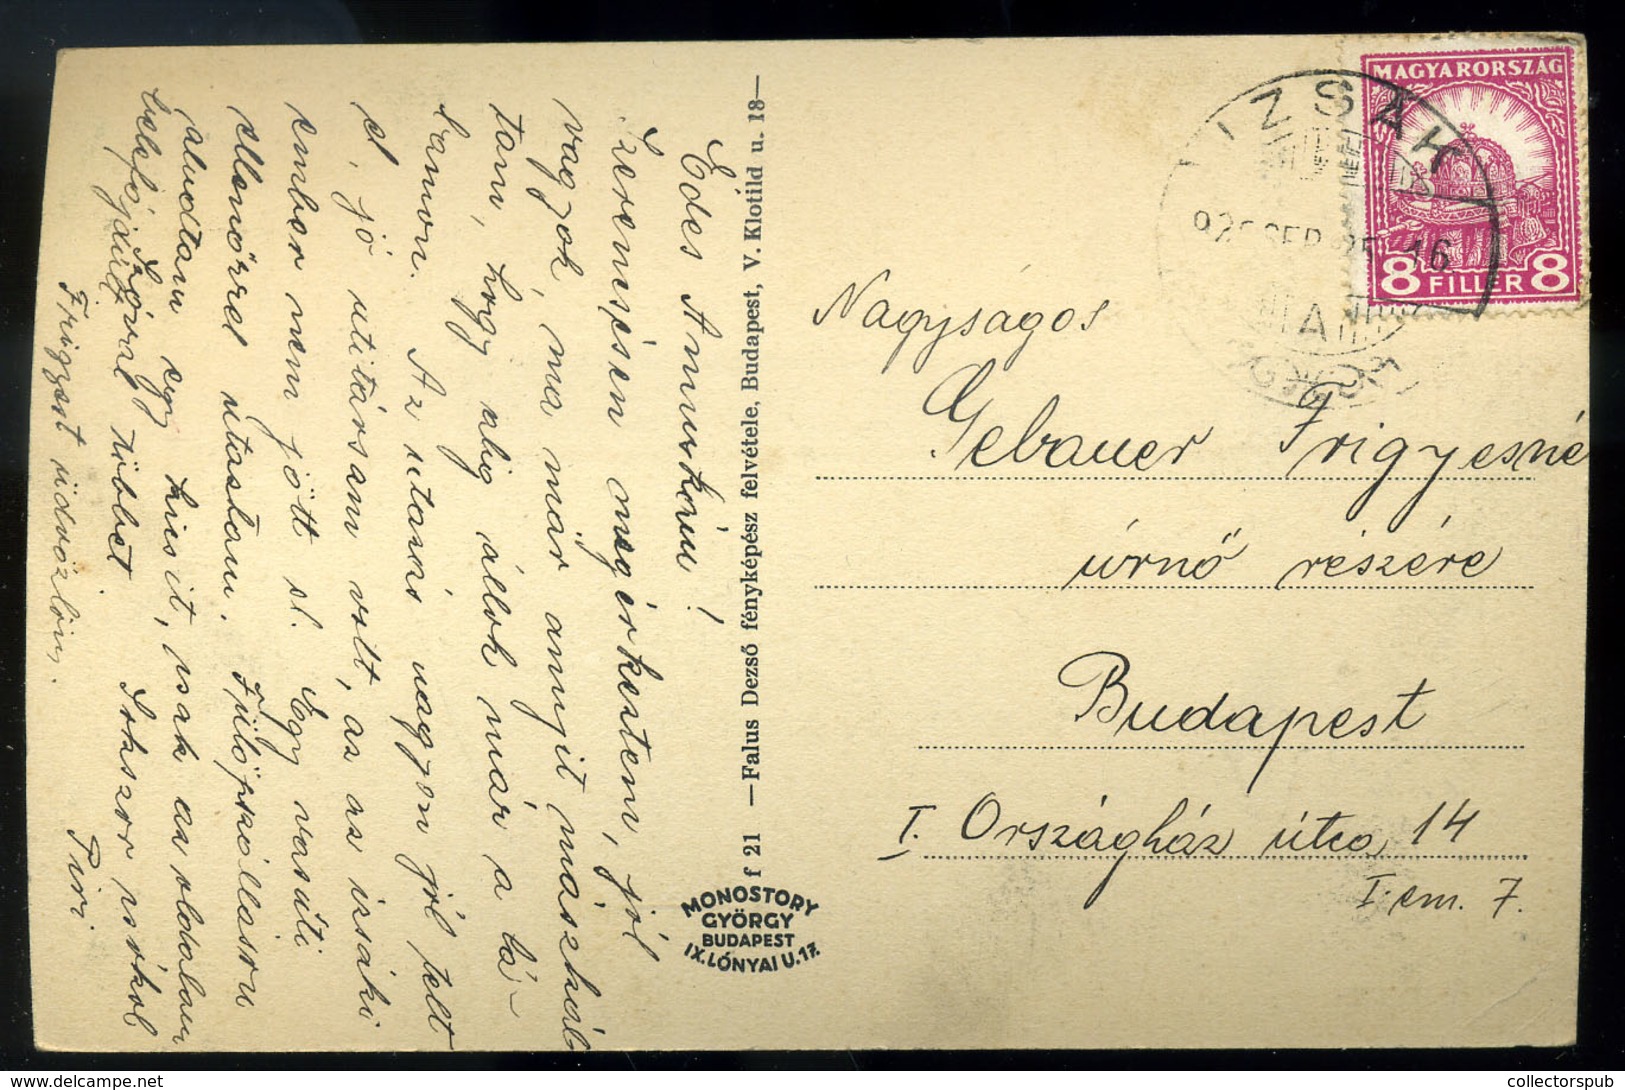 Édes Annuskám!
Szerencsésen megérkeztem, jól
vagyok, ma már annyit mászkál-
tam, hogy alig állok már a lá-
bamon. Az utazás nagyon jól telt
el, jó utitársam volt, az az izsáki
ember nem jött el. Egy vasúti
ellenőrrel utaztam. Fülöpszállásról
aludtam egy kicsit, csak az oldalam
belefájdult
Sárival többet Sokszor csókol
Frigyest üdvözlöm. Piri
f 21 —Falus Dezső fényképész felvétele, Budapest, V. Klotild u. 18—
MONOSTORY
GYÖRGY
BUDAPEST
IX. LÓNYAI U. 17.
MAGYARORSZÁG
8 FILLER 8
IZSÁK
SEP 16
A
Nagyságos
Gebauer Frigyesné
úrnő részére
Budapest
I. Országház útca 14
I. em. 7.
collectorspub